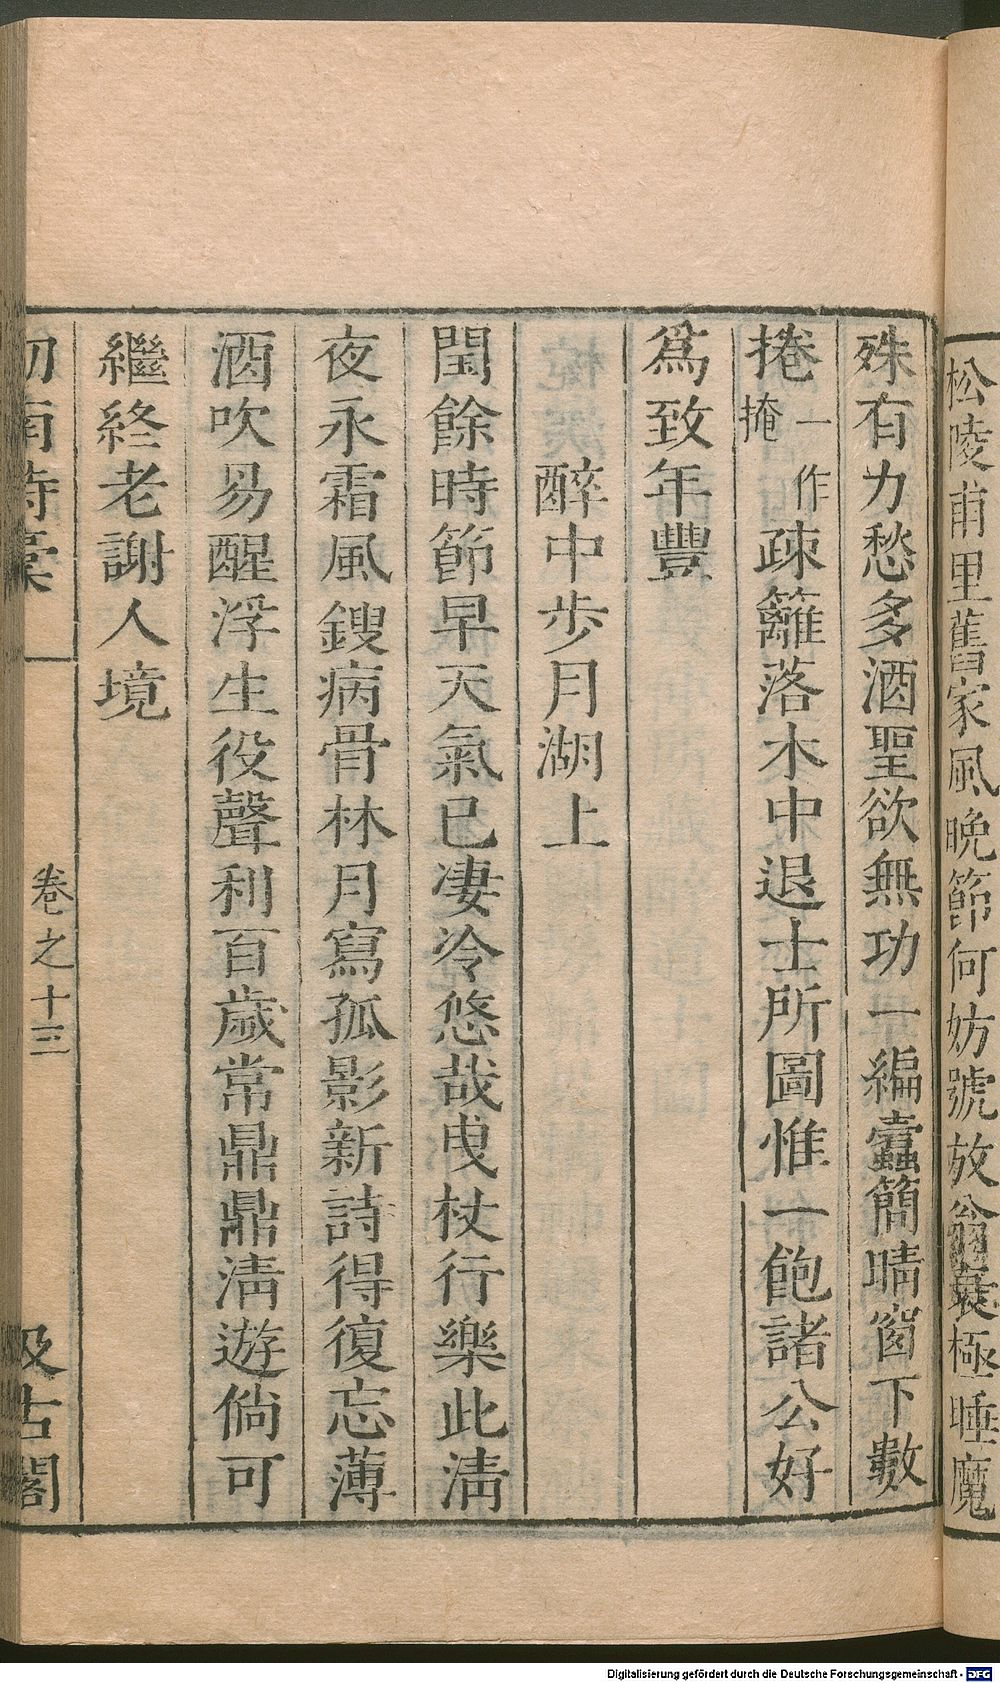 松陵甫里舊家風晚節何妨號放翁衰極睡魔
殊有力愁多酒聖欲無功一編蠹簡晴窗下數
捲一作掩疎籬落木中退士所圖惟一飽諸公好
爲致年豐
醉中步月湖上
閏餘時節早天氣已凄冷悠哉曳杖行樂此淸
夜永霜風鏤病骨林月寫孤影新詩得復忘薄
酒吹易醒浮生役聲利百歲常鼎鼎淸遊倘可
繼終老謝人境
劒南詩稾
卷之十三
汲古閣
Digitalisierung gefördert durch die Deutsche Forschungsgemeinschaft - DFG